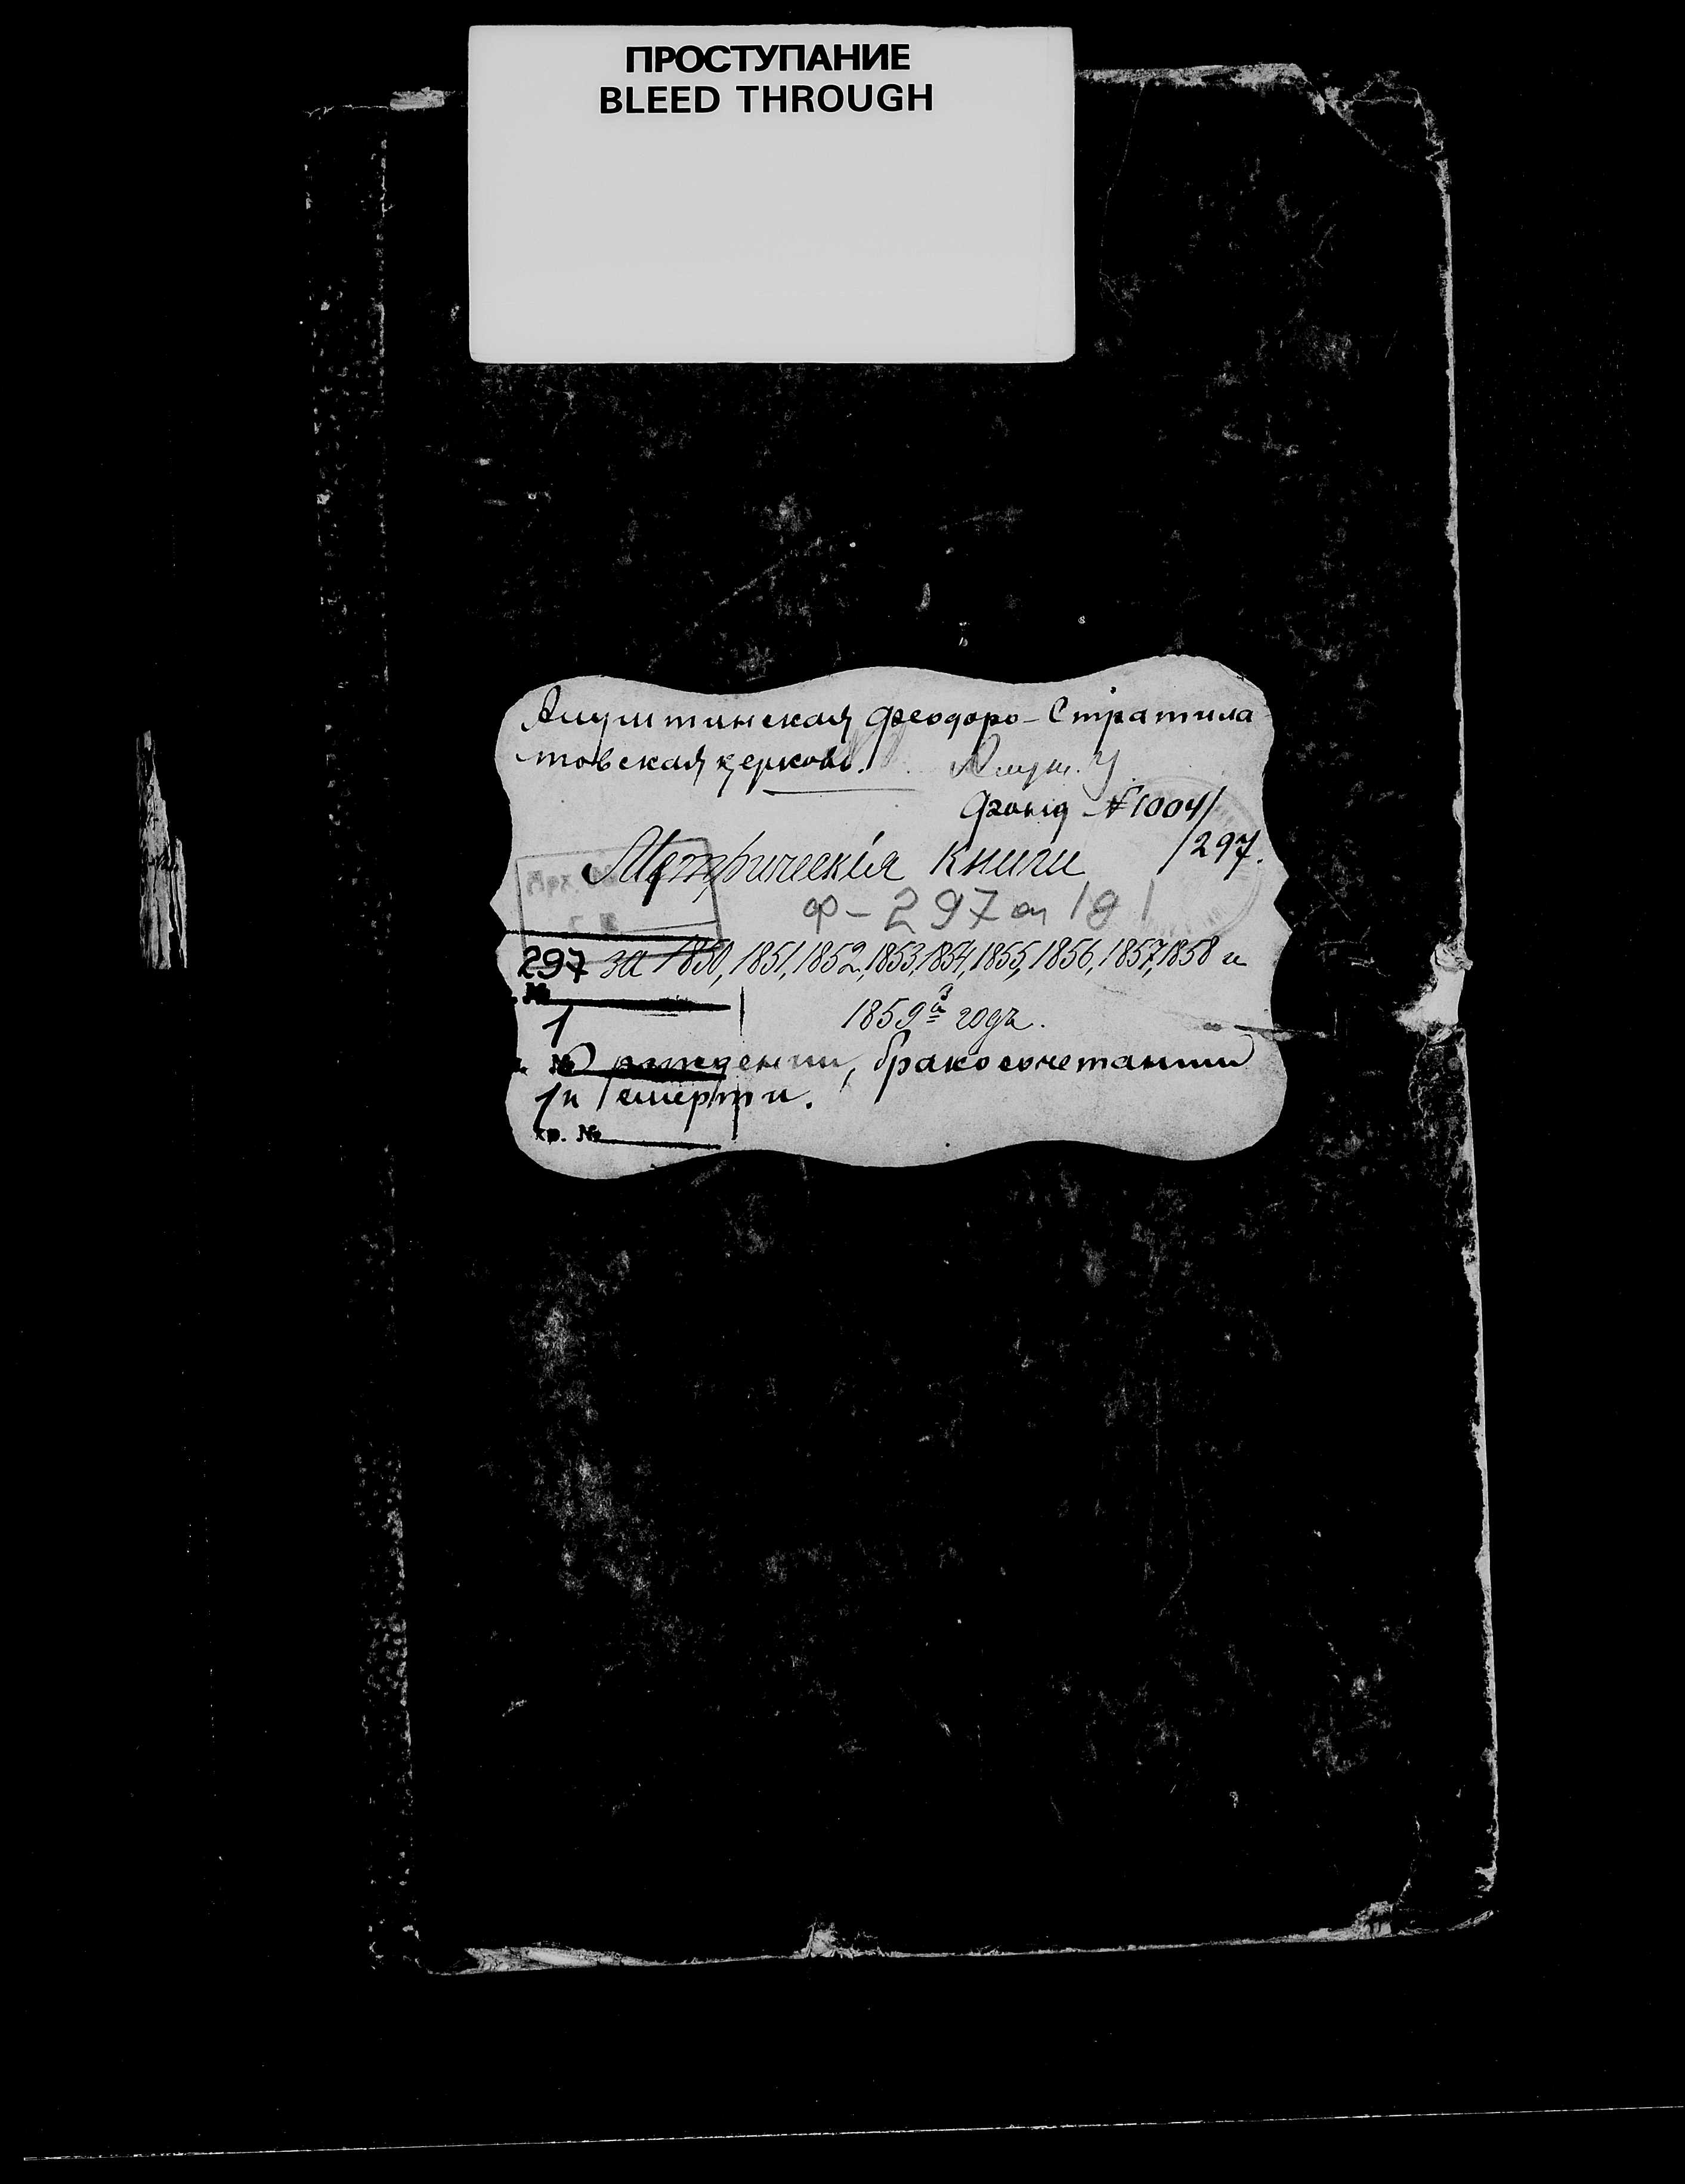 ПРОСТУПАНИЕ
BLEED THROUGH
Алуштинская Феодоро-Стратила
товская церковь. Алуш. У
Фонд №1004/
/297.
Метрическія книги
Ф-297 оп 1 д 1
297 за 1850, 1851, 1852, 1853, 1854, 1855, 1856, 1857, 1858 и
№
1 1859й годъ.
№ О рождении, бракосочетании
1 и смерти.
хр. №